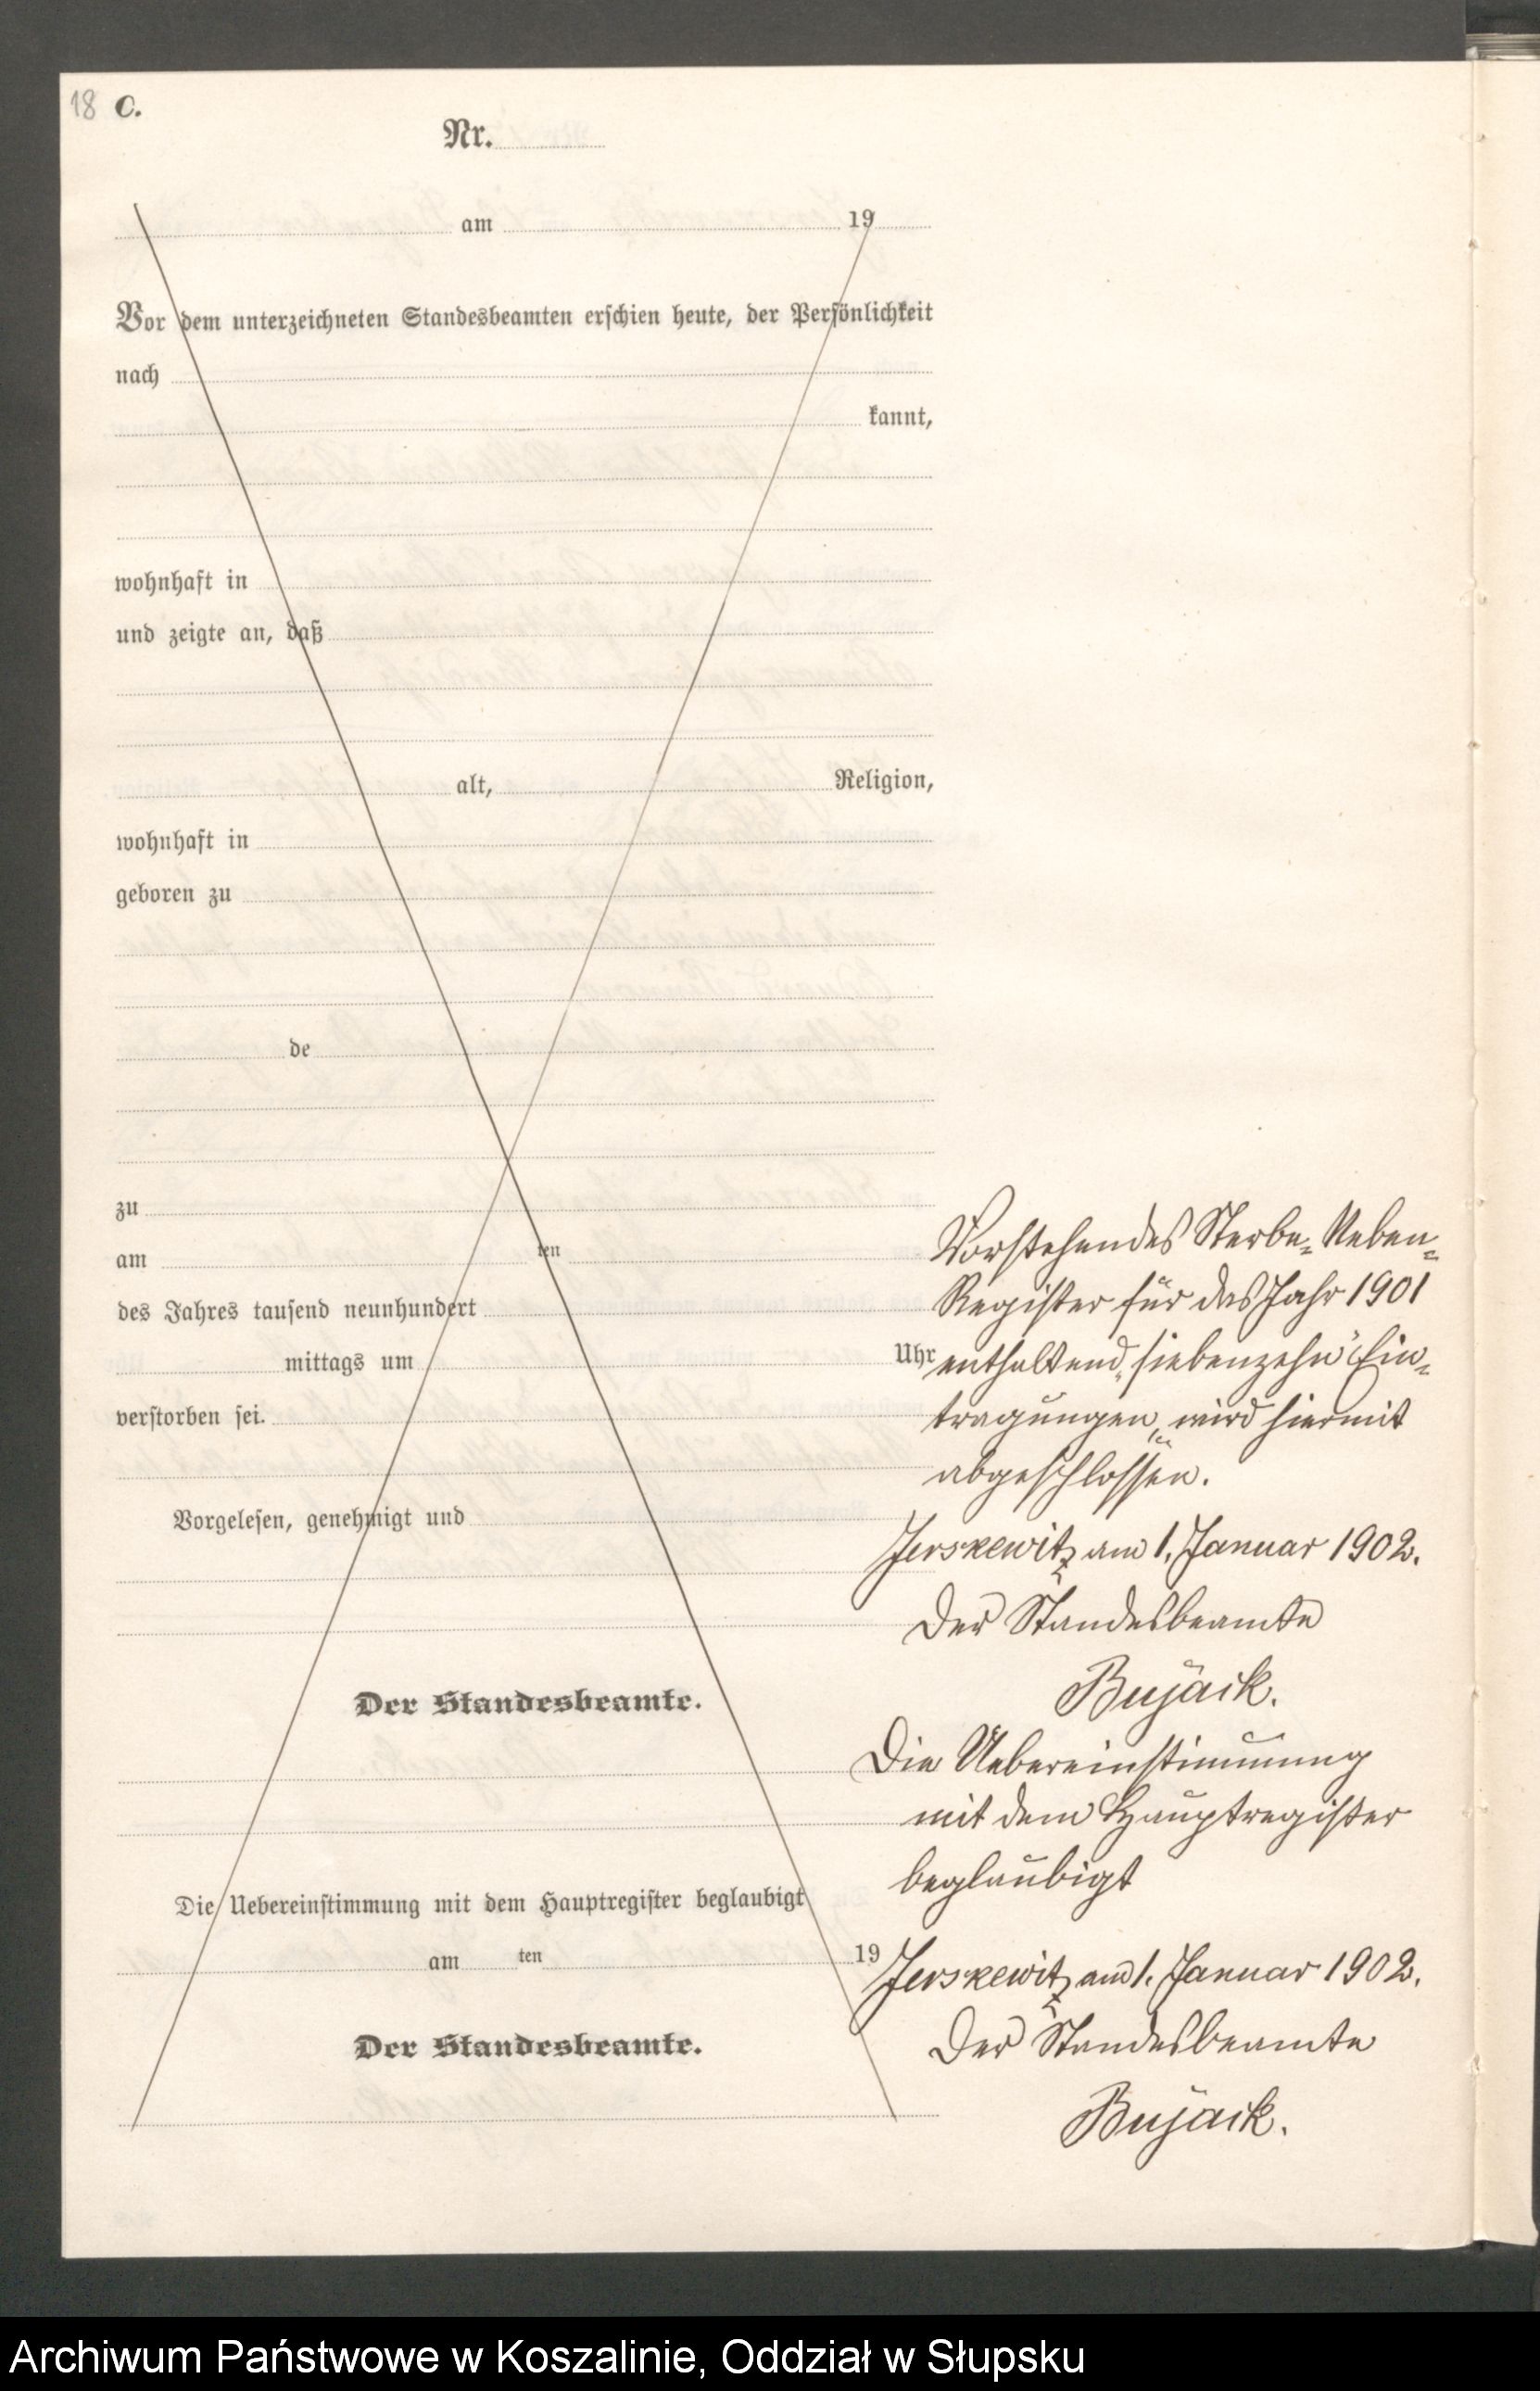 18 C.
Nr.
am 19
Vor dem unterzeichneten Standesbeamten erschien heute, der Persönlichkeit
nach
kannt,
wohnhaft in
und zeigte an, daß
alt, Religion,
wohnhaft in
geboren zu
de
zu
am ten
des Jahres tausend neunhundert
mittags um Uhr
verstorben sei.
Vorgelesen, genehmigt und
Der Standesbeamte.
Die Uebereinstimmung mit dem Hauptregister beglaubigt
am ten 19
Der Standesbeamte.
Vorstehendes Sterbe-Neben-
Register für das Jahr 1901
enthaltend „siebenzehn“ Ein-
tragungen, wird hiermit
abgeschlossen.
Jerskewitz am 1. Januar 1902.
Der Standesbeamte
Bujack.
Die Uebereinstimmung
mit dem Hauptregister
beglaubigt
Jerskewitz am 1. Januar 1902.
Der Standesbeamte
Bujack.
Archiwum Państwowe w Koszalinie, Oddział w Słupsku